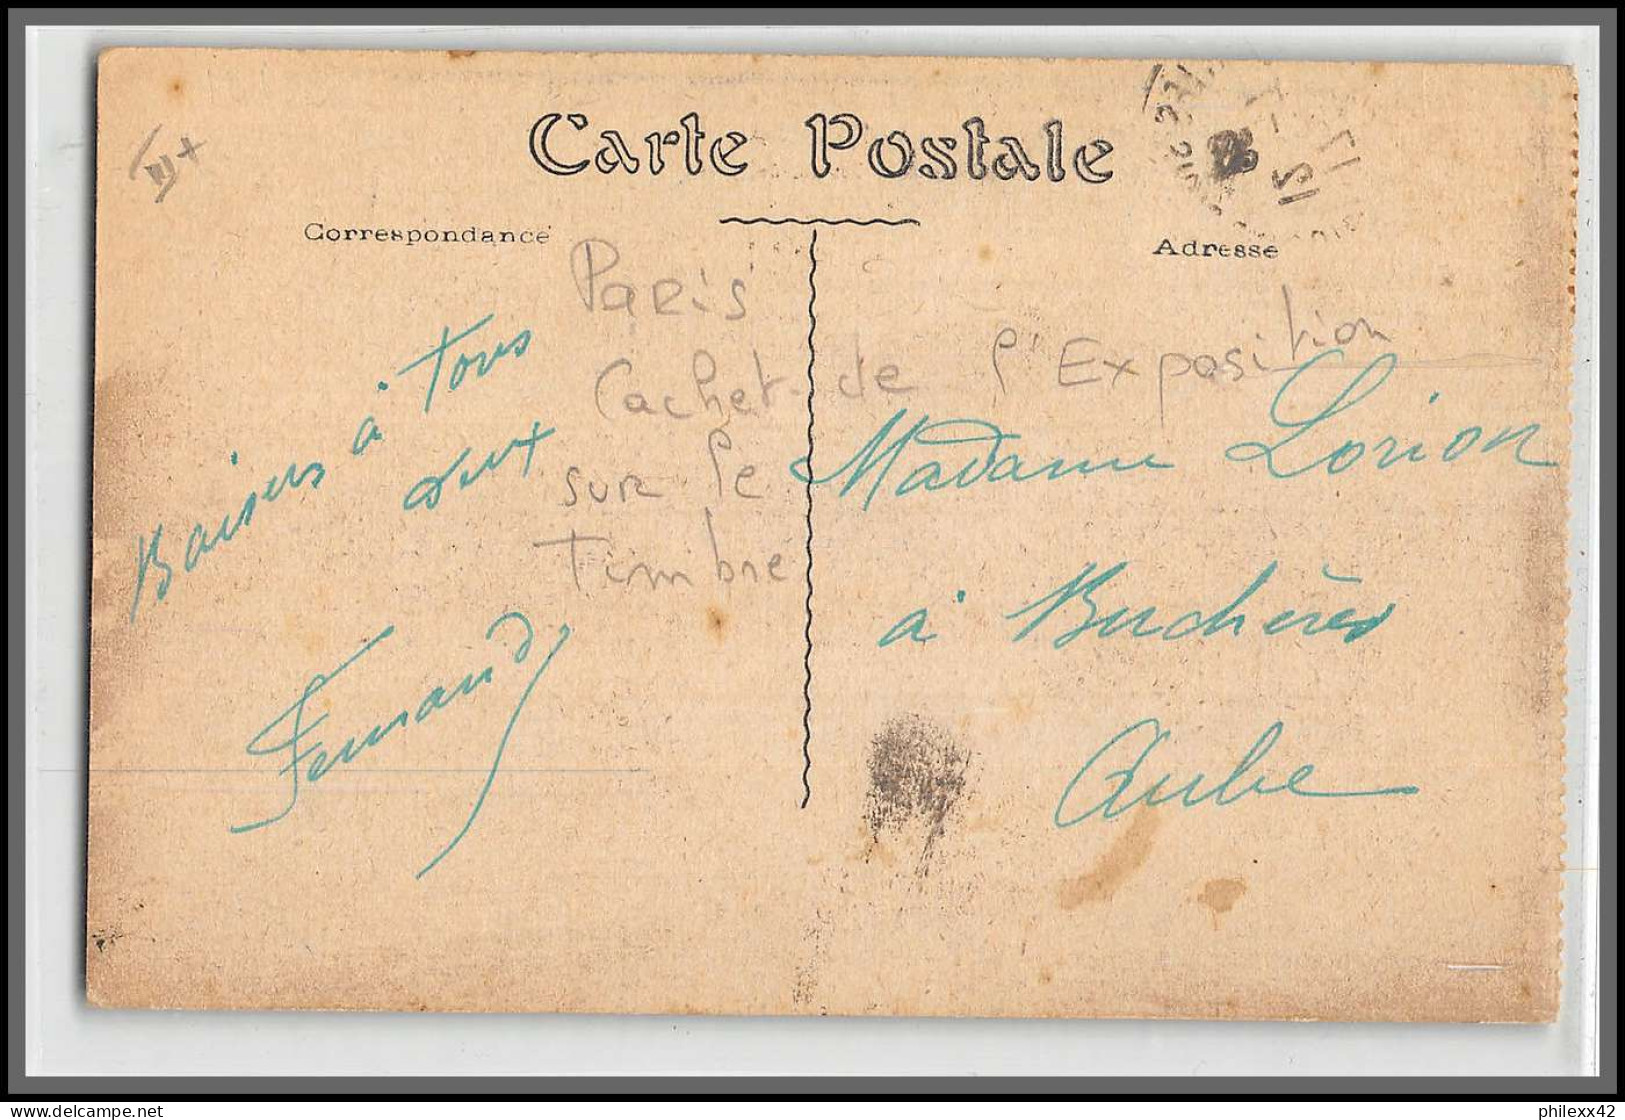 Carte Postale
Correspondance
Adresse
Paris
Cachet de l'Exposition
sur le
Timbre
Baisers à tous
deux
Fernand
Madame Lorion
à Buchères
Aube
philexx42